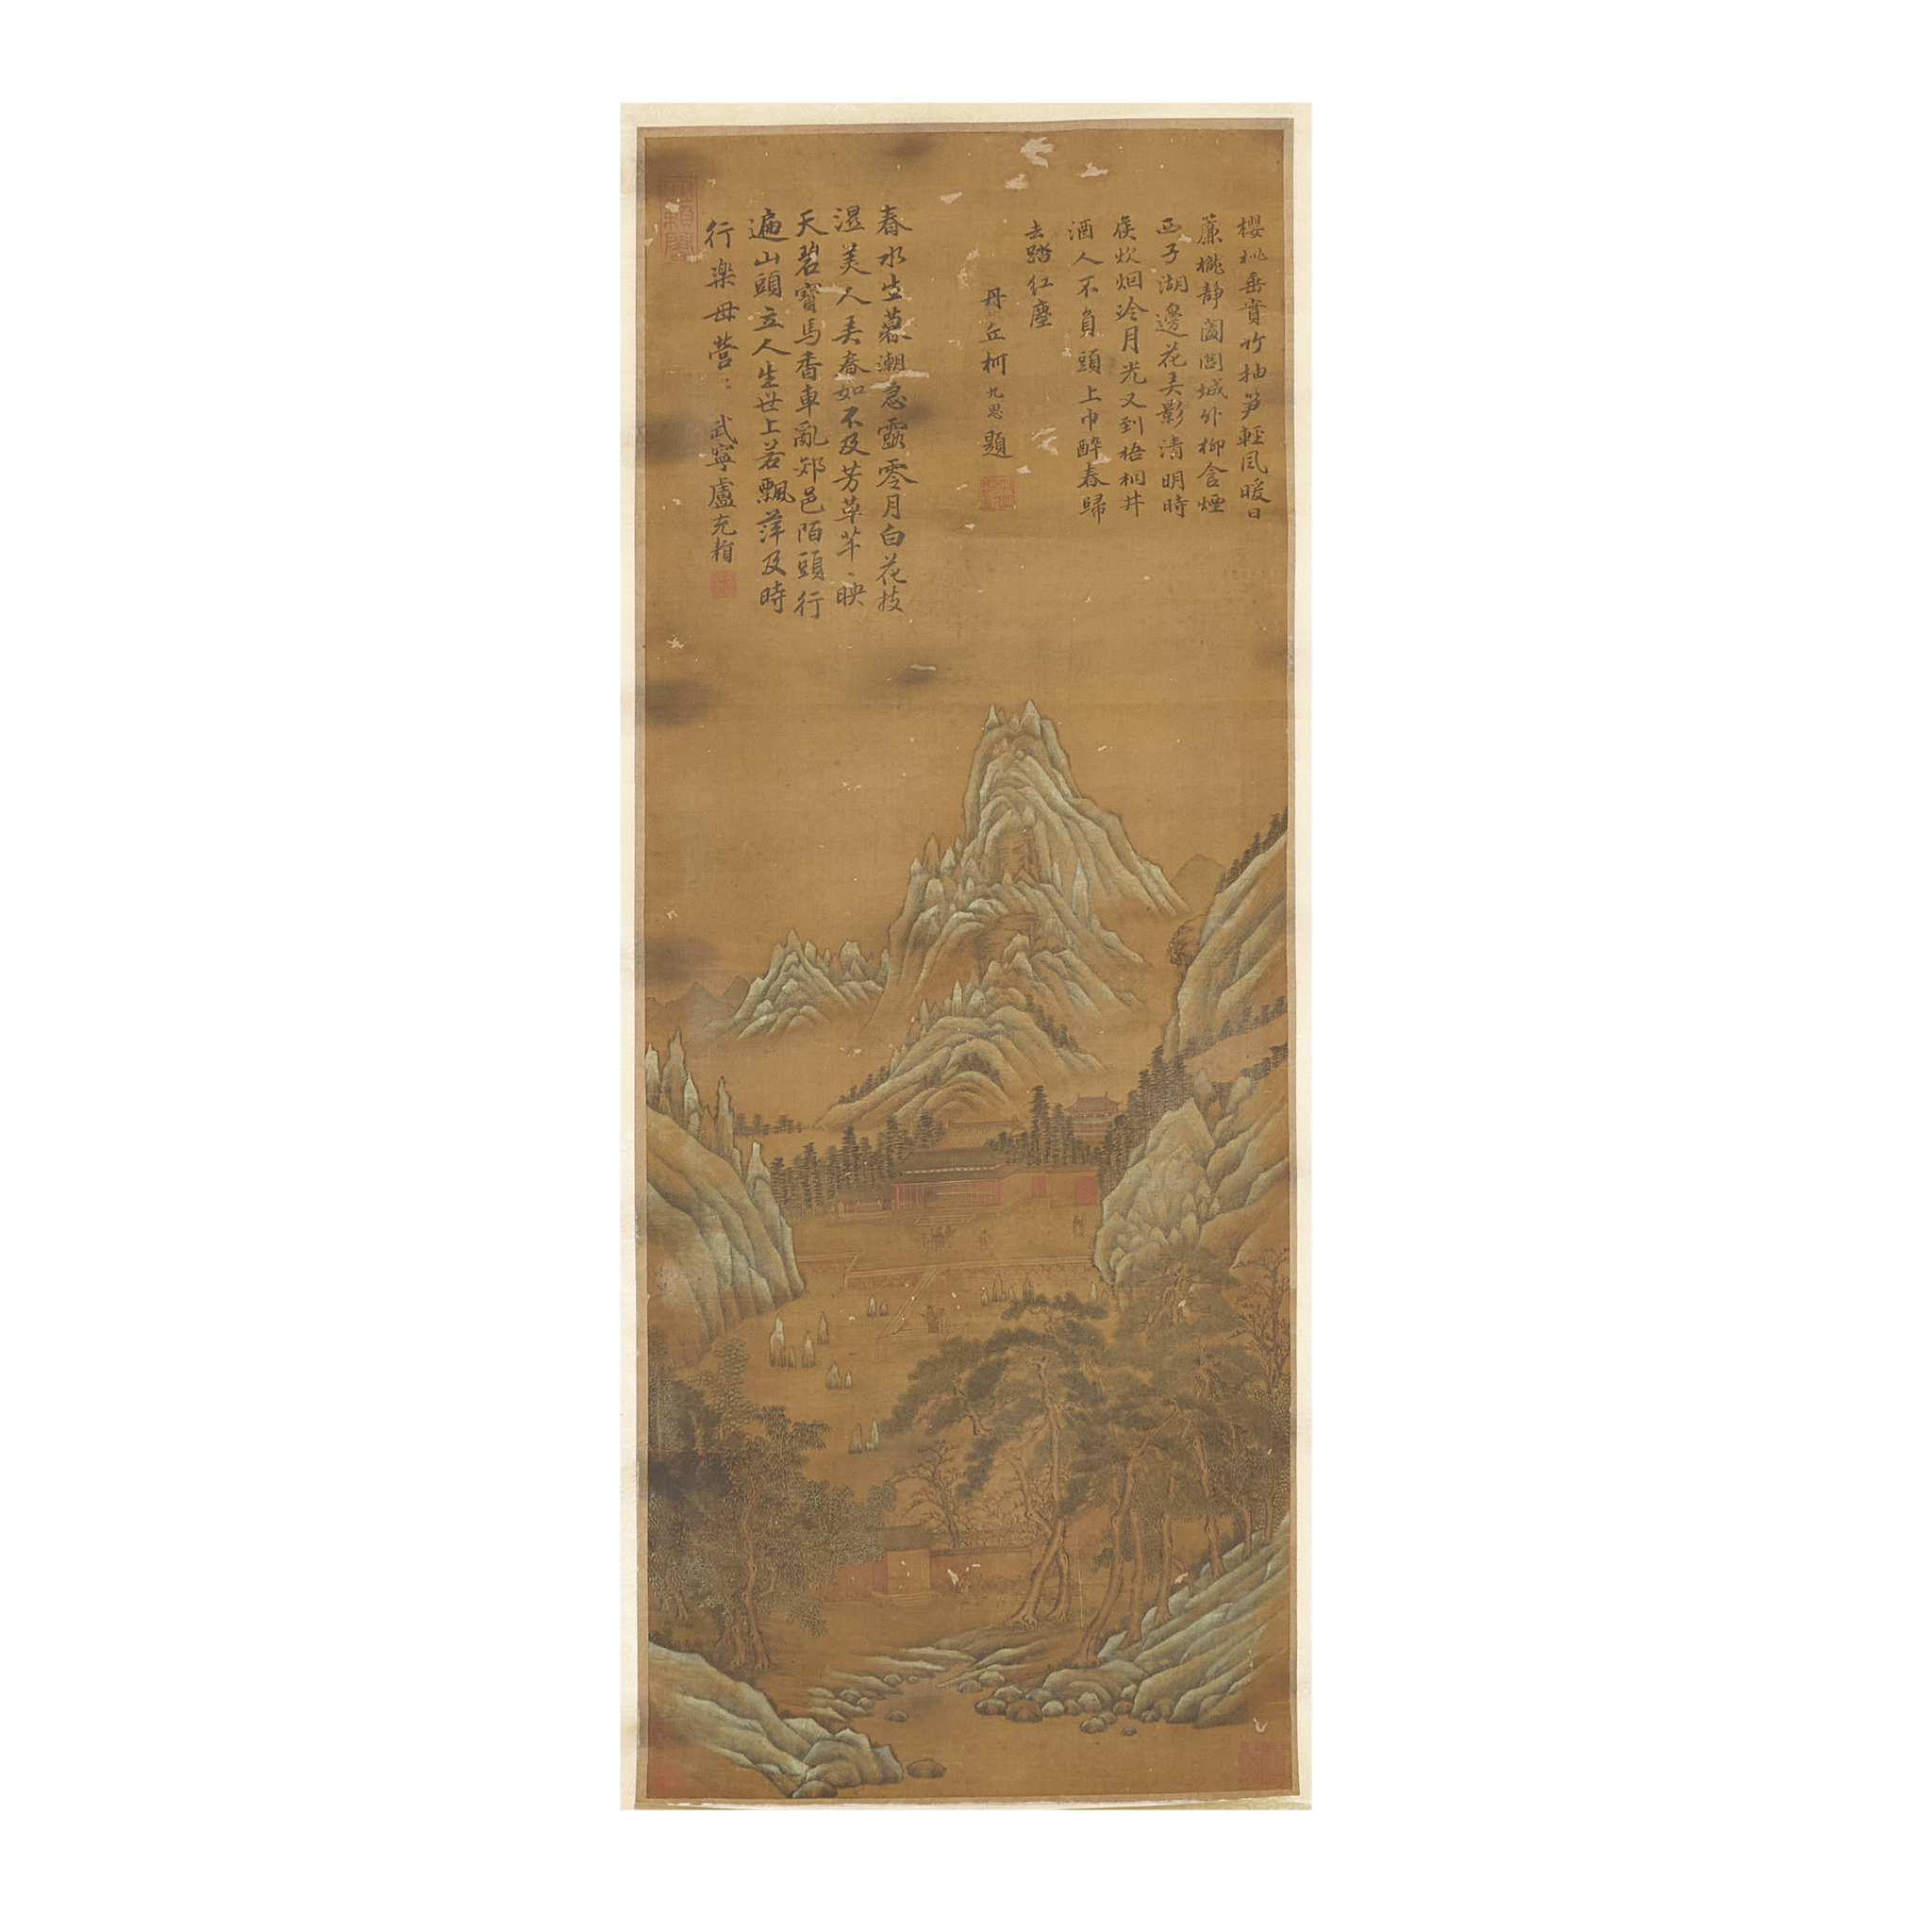 櫻桃垂實竹抽笋輕風暖日
簾櫳靜闔閭城外柳含煙
西子湖邊花弄影清明時
侯炊烟冷月光又到梧桐井
酒人不負頭上巾醉春歸
去踏紅塵
丹丘柯九思題
春水生暮潮急露零月白花技
濕美人弄春如不及芳草芊〻映
天碧寶馬香車亂郊邑陌頭行
遍山頭立人生世上若飄萍及時
行樂毋營〻 武寧盧充